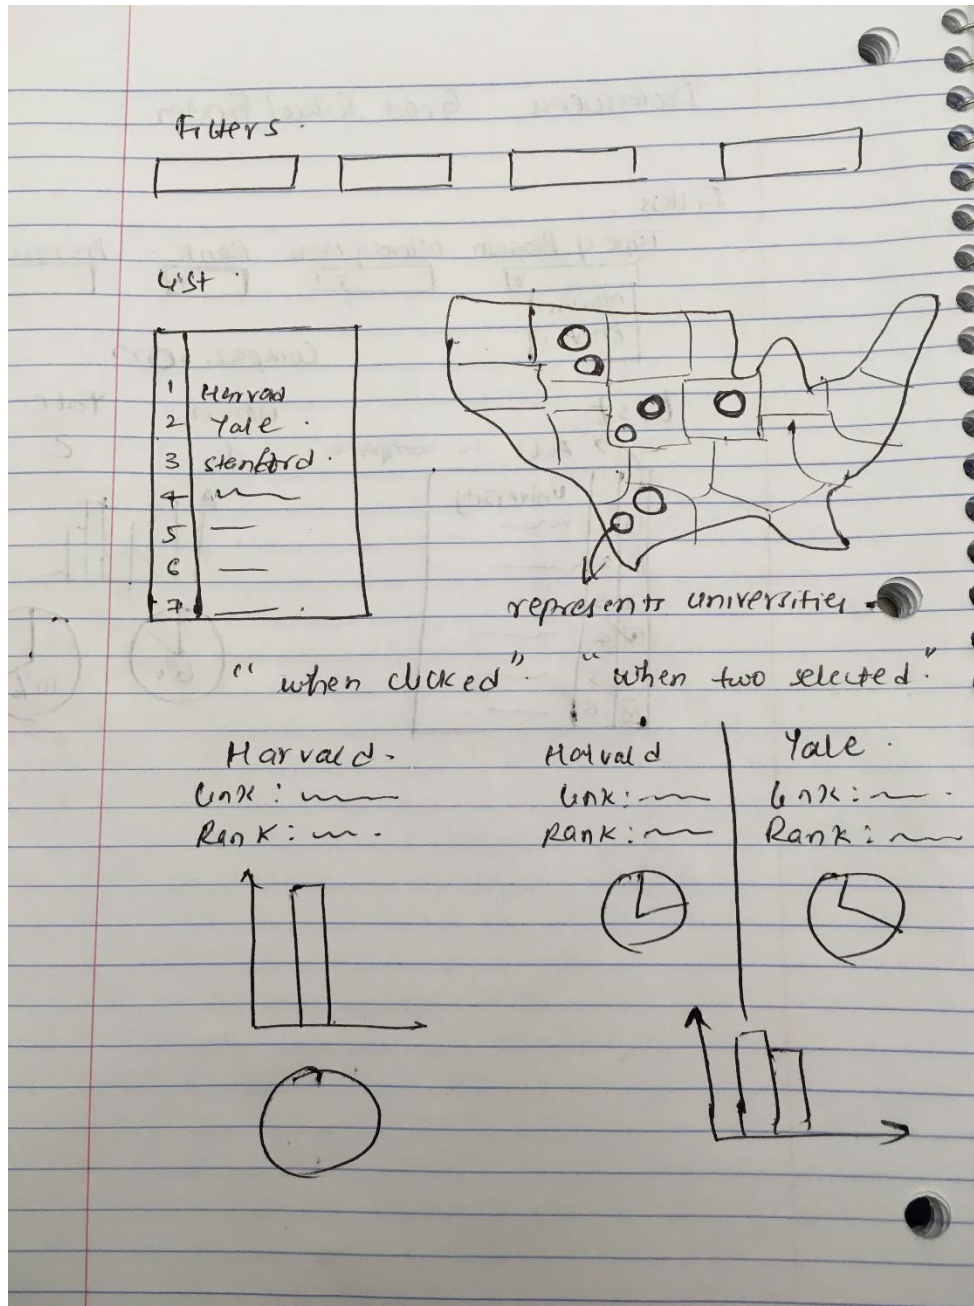 Filters.
List.
1 Harvad
2 Yale.
3 stanford.
4
5
6
7
represents universities.
"when clicked". "when two selected."
Harvald.
Link:
Rank:
Halvald
Link:
Rank:
Yale.
Link:
Rank: